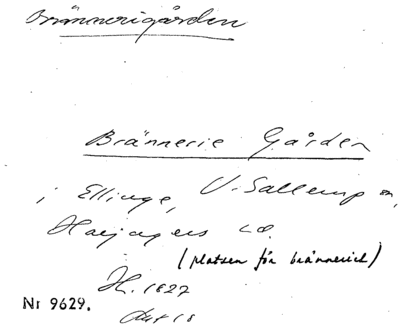 Brännerigården
Brännerie Gården
i Ellinge, V. Sallerup sn,
Harjagers hd.
(platsen för bränneriet)
H. 1827
Akt 18
Nr 9629.